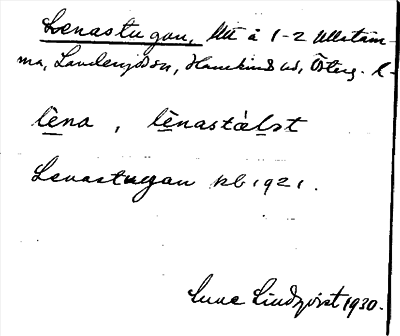 Lenastugan, Utt å 1-2 Ullstäm-
ma, Landeryds sn, Hanekinds hd, Österg. l.
lena, lenastu
Lenastugan kb 1921.
Sune Lindqvist 1930.